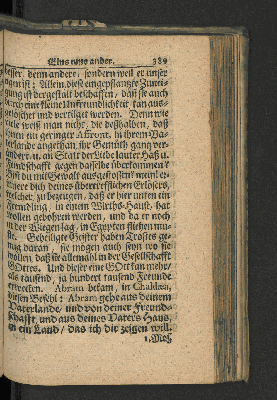 Eins ums ander. 589
besser, denn andere, sondern weil er unser
eigen ist: Allein, diese eingepflantzte Zunei-
gung ist dergestalt beschaffen, daß sie auch
durch eine kleine Unfreundlichkeit kan aus-
gelöschet und vertilget werden. Denn wie
viele weiß man nicht, die deßhalben, daß
ihnen ein geringer Affront, in ihrem Va-
terlande angethan, ihr Gemüth gantz ver-
ändert, u. an Statt der Liebe lauter Haß u.
Feindschafft gegen dasselbe überkommen?
Bist du mit Gewalt ausgestossen? mein! er-
innere dich deines übertrefflichen Erlösers,
welcher, zu bezeugen, daß er hier unten ein
Fremdling, in einem Wirths-Hause, hat
wollen gebohren werden, und da er noch
in der Wiegen lag, in Egypten fliehen mu-
ste. Geheiligte Geister haben Trostes ge-
nug daran, sie mögen auch seyn wo sie
wollen, daß sie allemahl in der Gesellschafft
GOttes. Und dieser eine GOtt kan mehr,
als tausend, ja hundert tausend Freunde
erwecken. Abram bekam, in Chaldäa,
diesen Befehl: Abram gehe aus deinem
Vaterlande, und von deiner Freund-
schafft, und aus deines Vaters Haus,
in ein Land, das ich dir zeigen will.
1. Mos.